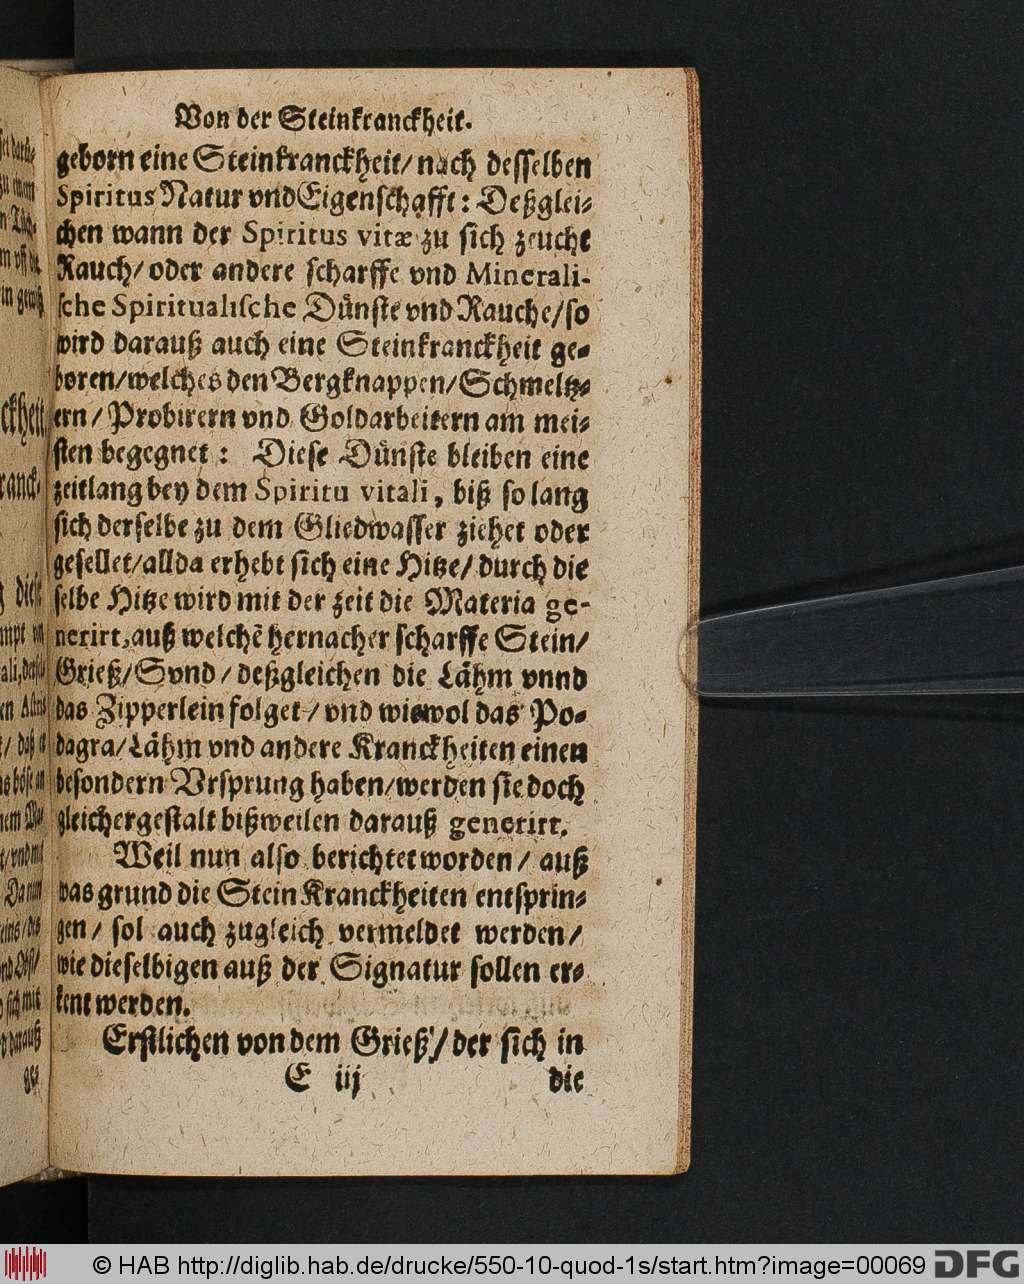 Von der Steinkranckheit.
geborn eine Steinkranckheit/ nach desselben
Spiritus Natur vnd Eigenschafft: Deßglei-
chen wann der Spiritus vitæ zu sich zeucht
Rauch/ oder andere scharffe vnd Minerali-
sche Spiritualische Dünste vnd Rauche/ so
wird darauß auch eine Steinkranckheit ge-
boren/ welches den Bergknappen/ Schmeltz-
ern/ Probirern vnd Goldarbeitern am mei-
sten begegnet: Diese Dünste bleiben eine
zeitlang bey dem Spiritu vitali, biß so lang
sich derselbe zu dem Gliedwasser ziehet oder
gesellet/ allda erhebt sich eine Hitze/ durch die
selbe Hitze wird mit der zeit die Materia ge-
nerirt, auß welchē hernacher scharffe Stein/
Grieß/ Svnd/ deßgleichen die Lähm vnnd
das Zipperlein folget/ vnd wiewol das Po-
dagra/ Lähm vnd andere Kranckheiten einen
besondern Vrsprung haben/ werden sie doch
gleichergestalt bißweilen darauß generirt.
Weil nun also berichtet worden/ auß
was grund die Stein Kranckheiten entsprin-
gen/ sol auch zugleich vermeldet werden/
wie dieselbigen auß der Signatur sollen er-
kent werden.
Erstlichen von dem Grieß/ der sich in
E iij die
© HAB http://diglib.hab.de/drucke/550-10-quod-1s/start.htm?image=00069 DFG